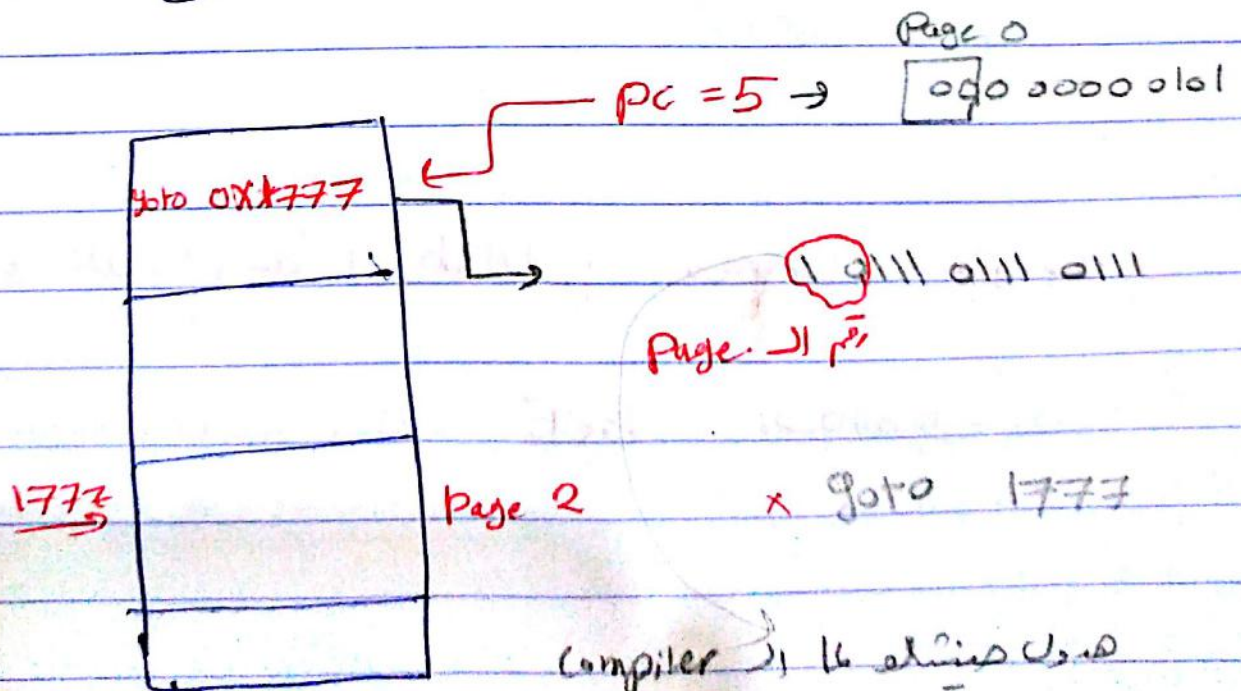 Page 0
pc = 5 → 0000 0000 0101
goto 0x1777
1 0111 0111 0111
رقم الـ Page
1777
Page 2
x goto 1777
هدول الـ Compiler